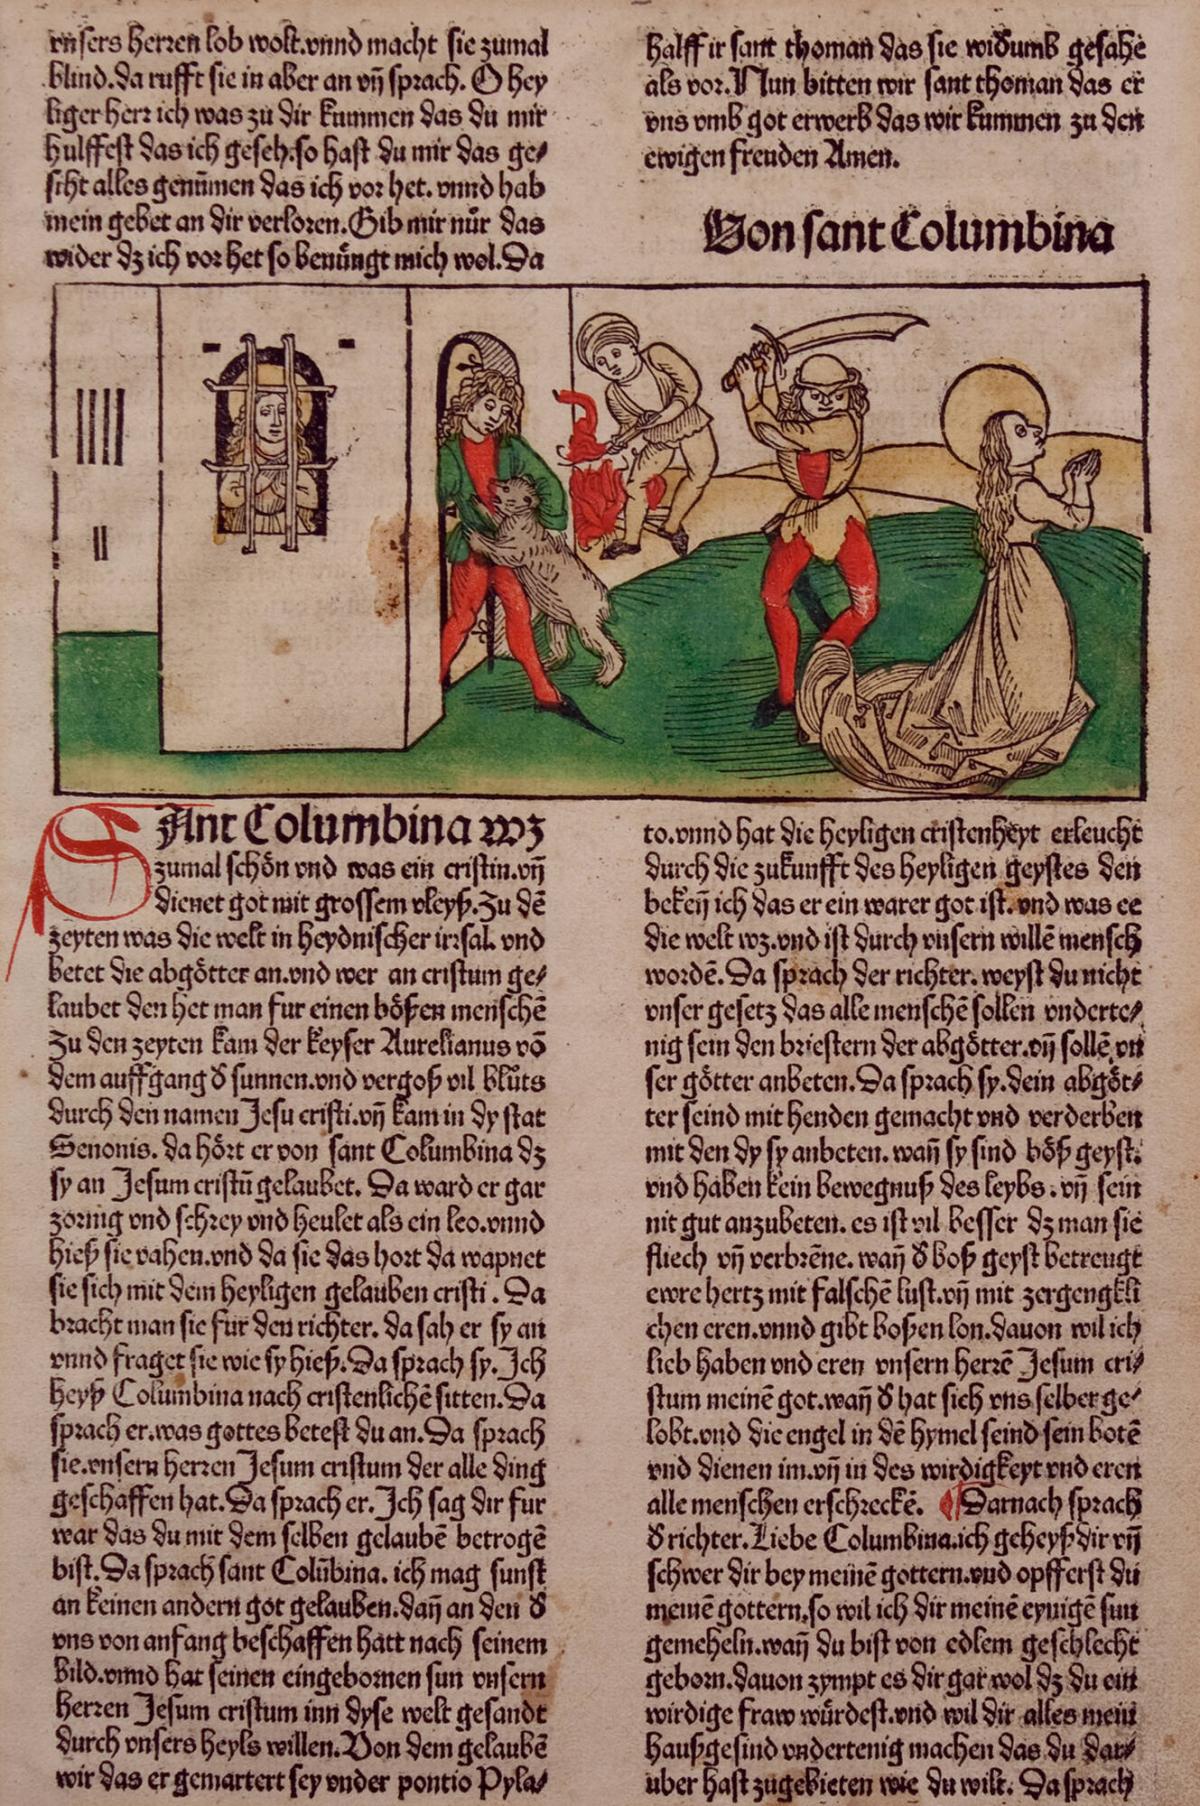 vnsers herren lob wolt.vnnd macht sie zumal
blind.da rufft sie in aber an vñ sprach. O hey
liger herr ich was zu dir kummen das du mir
hulffest das ich geseh.so hast du mir das ge/
sicht alles genūmen das ich vor het. vnnd hab
mein gebet an dir verloren.Gib mir nůr das
wider dz ich vor het so benůngt mich wol.Da
halff ir sant thoman das sie widumb gesahe
als vor.Nun bitten wir sant thoman das er
vns vmb got erwerb das wir kummen zu den
ewigen freuden Amen.
Von sant Columbina
SAnt Columbina wz
zumal schön vnd was ein cristin.vñ
dienet got mit grossem vleyß.Zu dē
zeyten was die welt in heydnischer irrsal. vnd
betet die abgötter an.vnd wer an cristum ge/
laubet den het man fur einen bößen menschē
Zu den zeyten kam der keyser Aurelianus vō
dem auffgang ď sunnen.vnd vergoß vil blůts
durch den namen Jesu cristi.vñ kam in dy stat
Senonis. da hört er von sant Columbina dz
sy an Jesum cristū gelaubet. Da ward er gar
zornig vnd schrey vnd heulet als ein leo.vnnd
hieß sie vahen.vnd da sie das hort da wapnet
sie sich mit dem heyligen gelauben cristi. Da
bracht man sie fur den richter. da sah er sy an
vnnd fraget sie wie sy hieß.Da sprach sy.Ich
heyß Columbina nach cristenlichē sitten.Da
sprach er.was gottes betest du an.Da sprach
sie.vnsern herren Jesum cristum der alle ding
geschaffen hat.Da sprach er.Ich sag dir fur
war das du mit dem selben gelaubē betrogē
bist.Da sprach sant Colūbina. ich mag sunst
an keinen andern got gelauben.dañ an den ď
vns von anfang beschaffen hatt nach seinem
bild.vnnd hat seinen eingebornen sun vnsern
herren Jesum cristum inn dyse welt gesandt
durch vnsers heyls willen.Von dem gelaubē
wir das er gemartert sey vnder pontio Pyla/
to.vnnd hat die heyligen cristenheyt erleucht
durch die zukunfft des heyligen geystes den
bekeñ ich das er ein warer got ist. vnd was ee
die welt wz.vnd ist durch vnsern willē mensch
wordē.Da sprach der richter. weyst du nicht
vnser gesetz das alle menschē sollen vnderte/
nig sein den briestern der abgötter.vñ sollē vn
ser götter anbeten.Da sprach sy.dein abgöt/
ter seind mit henden gemacht vnd verderben
mit den dy sy anbeten. wañ sy sind böß geyst.
vnd haben kein bewegnuß des leybs. vñ sein
nit gut anzubeten. es ist vil besser dz man sie
fliech vñ verbrēne. wañ ď boß geyst betreugt
ewre hertz mit falschē lust.vñ mit zergengkli
chen eren.vnnd gibt boßen lon.dauon wil ich
lieb haben vnd eren vnsern herrē Jesum cri/
stum meinē got.wañ ď hat sich vns selber ge/
lobt.vnd die engel in dē hymel seind sein botē
vnd dienen im.vñ in des wirdigkeyt vnd eren
alle menschen erschreckē. ¶Darnach sprach
ď richter.Liebe Columbina.ich geheyß dir vñ
schwer dir bey meinē gottern.vnd opfferst du
meinē gottern.so wil ich dir meinē eynigē sun
gemeheln.wañ du bist von edlem geschlecht
geborn.dauon zympt es dir gar wol dz du ein
wirdige fraw würdest.vnd wil dir alles mein
haußgesind vndertenig machen das du dar/
uber hast zugebieten wie du wilt. Da sprach